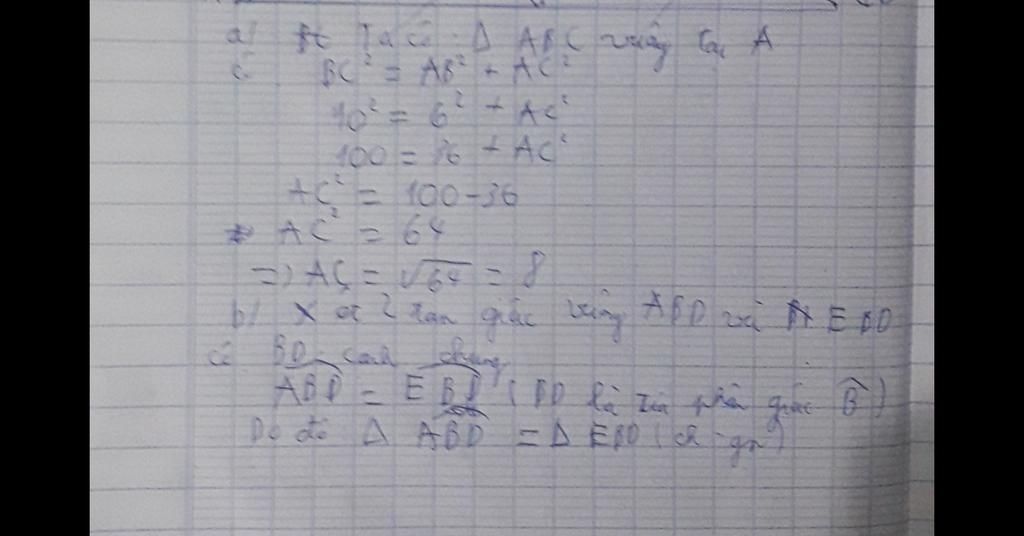 a) Ta có: Δ ABC vuông tại A
có BC² = AB² + AC²
10² = 6² + AC²
100 = 36 + AC²
AC² = 100 - 36
AC² = 64
=> AC = √64 = 8
b) Xét 2 tam giác vuông ABD và EBD
có BD cạnh chung
ABD = EBD (BD là tia phân giác B̂)
Do đó Δ ABD = Δ EBD (ch-gn)